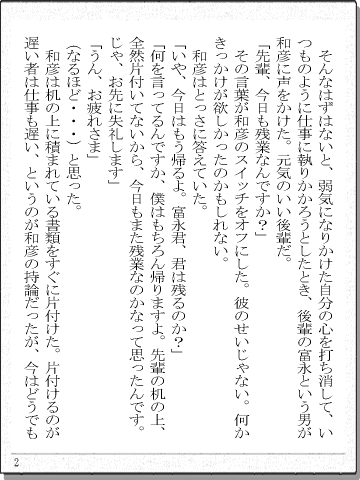 そんなはずはないと、弱気になりかけた自分の心を打ち消して、い
つものように仕事に執りかかろうとしたとき、後輩の富永という男が
和彦に声をかけた。元気のいい後輩だ。
「先輩、今日も残業なんですか？」
　その言葉が和彦のスイッチをオフにした。彼のせいじゃない。何か
きっかけが欲しかったのかもしれない。
　和彦はとっさに答えていた。
「いや、今日はもう帰るよ。富永君、君は残るのか？」
「何を言ってるんですか、僕はもちろん帰りますよ。先輩の机の上、
全然片付いてないから、今日もまた残業なのかなって思ったんです。
じゃ、お先に失礼します」
「うん、お疲れさま」
（なるほど・・・）と思った。
　和彦は机の上に積まれている書類をすぐに片付けた。片付けるのが
遅い者は仕事も遅い、というのが和彦の持論だったが、今はどうでも
2